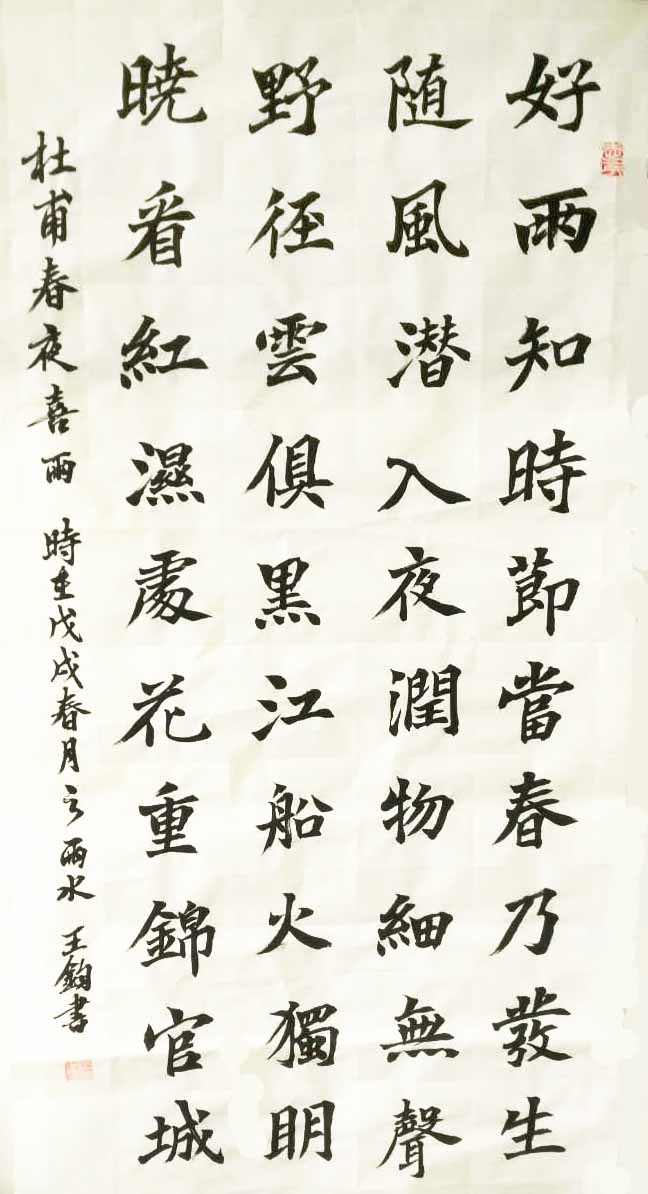 好雨知時節當春乃發生
随風潜入夜潤物細無聲
野径雲俱黑江船火獨明
曉看紅濕處花重錦官城
杜甫春夜喜雨 時在戊戌春月之雨水 王鈞書